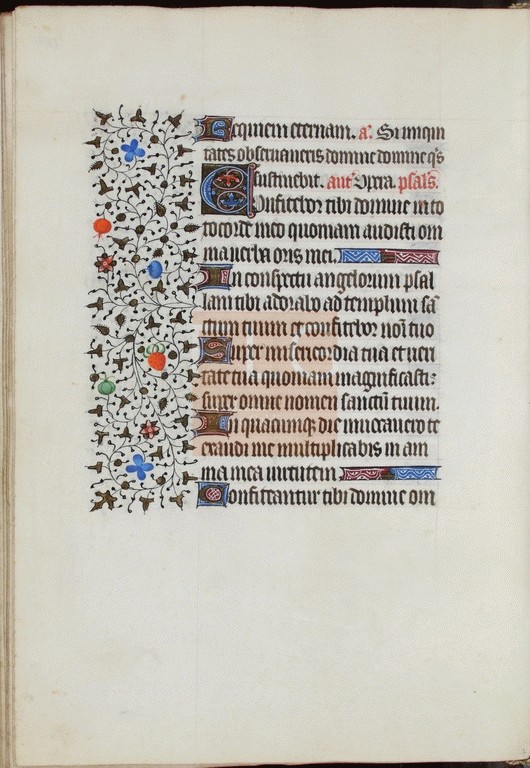 Requiem eternam. a. Si iniqui
tates observaveris domine domine q̄s
sustinebit. ant̄ Opera. psalˢ.
Confitebor tibi domine in to
to corde meo quoniam audisti om
nia verba oris mei.
In conspectu angelorum psal
lam tibi adorabo ad templum sā
ctum tuum et confitebor noī tuo
Super misericordia tua et veri
tate tua quoniam magnificasti
super omne nomen sanctū tuum.
In quacumq; die invocavero te
exaudi me multiplicabis in am
ma mea virtutem.
Confiteantur tibi domine om